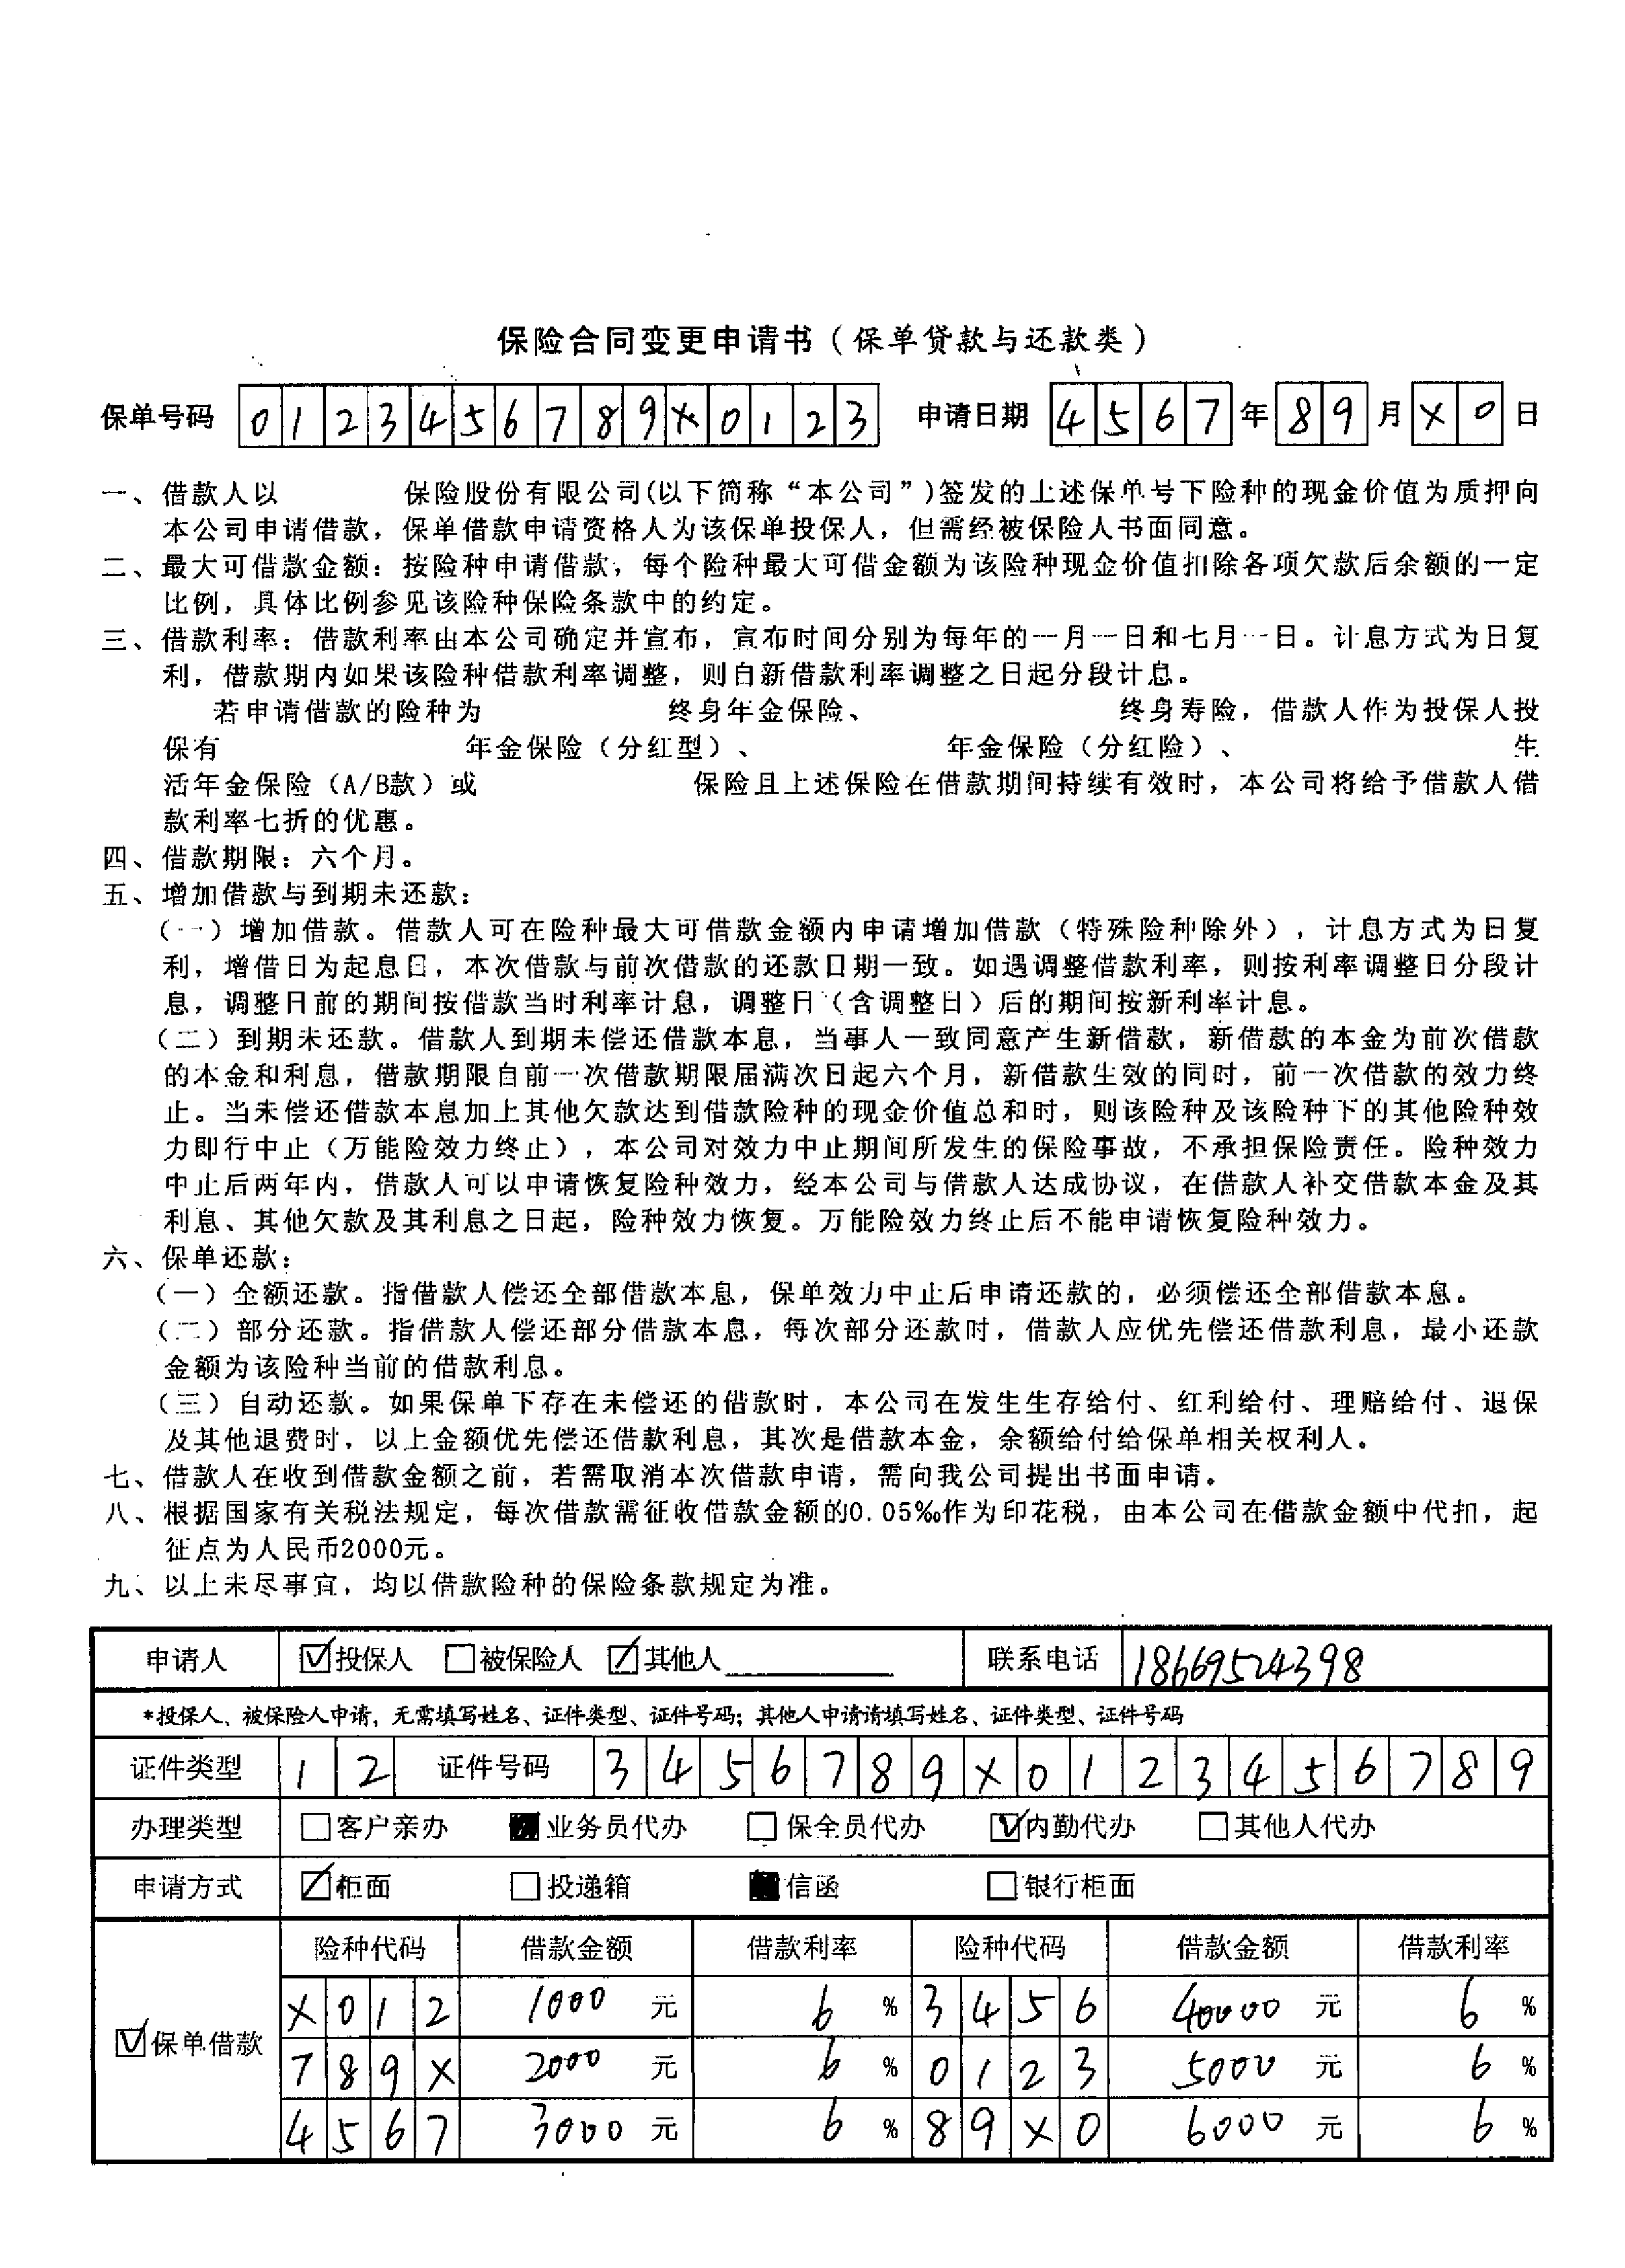 保险合同变更申请书（保单贷款与还款类）
保单号码 0 1 2 3 4 5 6 7 8 9 X 0 1 2 3 申请日期 4 5 6 7 年 8 9 月 X 0 日
一、借款人以 保险股份有限公司(以下简称“本公司”)签发的上述保单号下险种的现金价值为质押向
本公司申请借款，保单借款申请资格人为该保单投保人，但需经被保险人书面同意。
二、最大可借款金额：按险种申请借款，每个险种最大可借金额为该险种现金价值扣除各项欠款后余额的一定
比例，具体比例参见该险种保险条款中的约定。
三、借款利率：借款利率由本公司确定并宣布，宣布时间分别为每年的一月一日和七月一日。计息方式为日复
利，借款期内如果该险种借款利率调整，则自新借款利率调整之日起分段计息。
若申请借款的险种为 终身年金保险、 终身寿险，借款人作为投保人投
保有 年金保险（分红型）、 年金保险（分红险）、 生
活年金保险（A/B款）或 保险且上述保险在借款期间持续有效时，本公司将给予借款人借
款利率七折的优惠。
四、借款期限：六个月。
五、增加借款与到期未还款：
（一）增加借款。借款人可在险种最大可借款金额内申请增加借款（特殊险种除外），计息方式为日复
利，增借日为起息日，本次借款与前次借款的还款日期一致。如遇调整借款利率，则按利率调整日分段计
息，调整日前的期间按借款当时利率计息，调整日（含调整日）后的期间按新利率计息。
（二）到期未还款。借款人到期未偿还借款本息，当事人一致同意产生新借款，新借款的本金为前次借款
的本金和利息，借款期限自前一次借款期限届满次日起六个月，新借款生效的同时，前一次借款的效力终
止。当未偿还借款本息加上其他欠款达到借款险种的现金价值总和时，则该险种及该险种下的其他险种效
力即行中止（万能险效力终止），本公司对效力中止期间所发生的保险事故，不承担保险责任。险种效力
中止后两年内，借款人可以申请恢复险种效力，经本公司与借款人达成协议，在借款人补交借款本金及其
利息、其他欠款及其利息之日起，险种效力恢复。万能险效力终止后不能申请恢复险种效力。
六、保单还款：
（一）全额还款。指借款人偿还全部借款本息，保单效力中止后申请还款的，必须偿还全部借款本息。
（二）部分还款。指借款人偿还部分借款本息，每次部分还款时，借款人应优先偿还借款利息，最小还款
金额为该险种当前的借款利息。
（三）自动还款。如果保单下存在未偿还的借款时，本公司在发生生存给付、红利给付、理赔给付、退保
及其他退费时，以上金额优先偿还借款利息，其次是借款本金，余额给付给保单相关权利人。
七、借款人在收到借款金额之前，若需取消本次借款申请，需向我公司提出书面申请。
八、根据国家有关税法规定，每次借款需征收借款金额的0.05‰作为印花税，由本公司在借款金额中代扣，起
征点为人民币2000元。
九、以上未尽事宜，均以借款险种的保险条款规定为准。
申请人 ☑投保人 □被保险人 ☑其他人 联系电话 18669524398
*投保人、被保险人申请，无需填写姓名、证件类型、证件号码；其他人申请请填写姓名、证件类型、证件号码
证件类型 1 2 证件号码 3 4 5 6 7 8 9 X 0 1 2 3 4 5 6 7 8 9
办理类型 □客户亲办 ■业务员代办 □保全员代办 ☑内勤代办 □其他人代办
申请方式 ☑柜面 □投递箱 ■信函 □银行柜面
险种代码 借款金额 借款利率 险种代码 借款金额 借款利率
X 0 1 2 1000 元 6 % 3 4 5 6 40000 元 6 %
☑保单借款
7 8 9 X 2000 元 6 % 0 1 2 3 5000 元 6 %
4 5 6 7 3000 元 6 % 8 9 X 0 6000 元 6 %